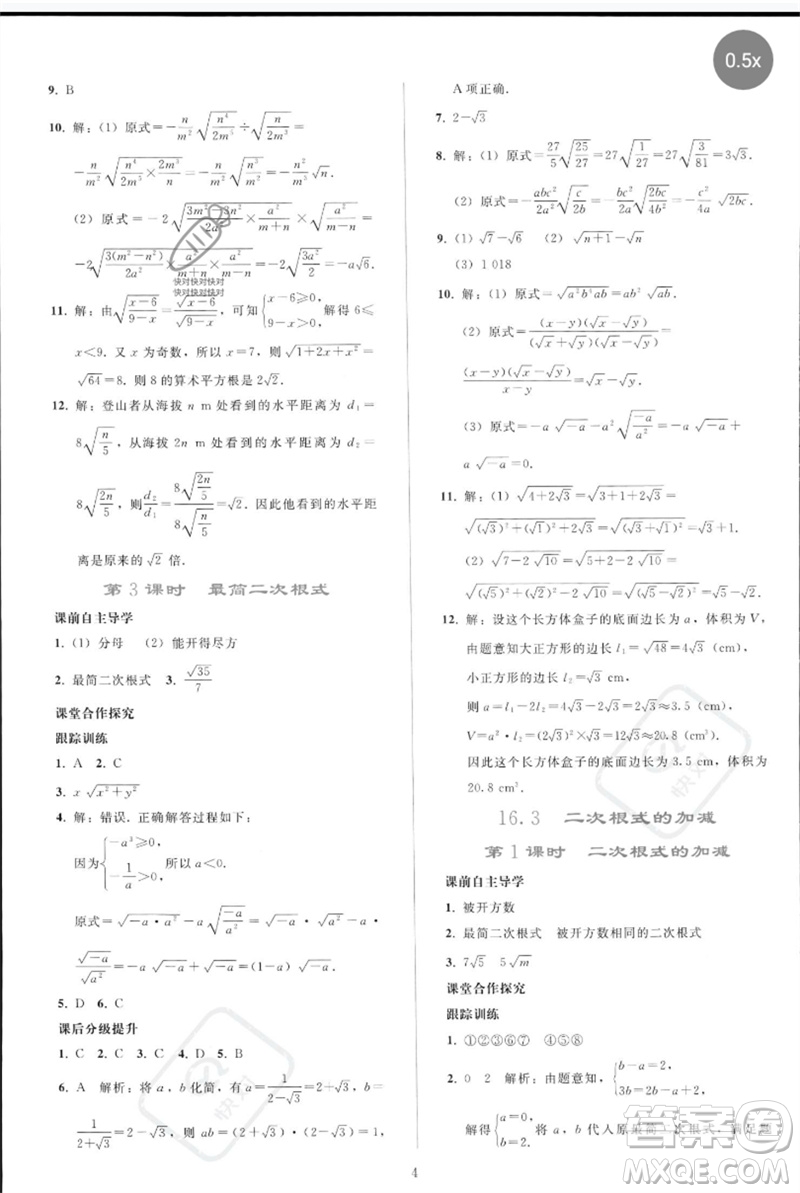 0.5x
9. B
10. 解：(1) 原式=-n/m²√(n⁴/2m⁵)÷√(n²/2m³)=
-n/m²√(n⁴/2m⁵×2m³/n²)=-n/m²×n/m=-n²/m³√n.
(2) 原式=-2√(
-2√(3(m²-n²)/2a²×a²/m+n×a²/m-n)=-a√6.
快对快对快对
快对快对快对
11. 解：由√(x-6/9-x)=√(x-6)/√(9-x)，可知{x-6≥0, 9-x>0, 解得 6≤
x<9. 又 x 为奇数，所以 x=7，√(1+2x+x²)=
√64=8. 所以 8 的算术平方根是 2√2.
12. 解：登山者从海拔 n m 处看到的水平距离为 d₁=
8√(n/5)，从海拔 2n m 处看到的水平距离为 d₂=
8√(2n/5)，则d₂/d₁=8√(2n/5)/8√(n/5)=√2. 因此他看到的水平距
离是原来的 √2 倍.
第 3 课时 最简二次根式
课前自主导学
1. (1) 分母 (2) 能开得尽方
2. 最简二次根式 3. √35/7
课堂合作探究
跟踪训练
1. A 2. C
3. x√(x²+y²)
4. 解：错误. 正确解答过程如下：
因为{-a³≥0, -1/a>0, 所以 a<0.
原式=√(-a·a²)-a√(-a/a²)=√(-a)·√a²-a·
√(-a)/√a²=-a√(-a)+√(-a)=(1-a)√(-a).
5. D 6. C
课后分级提升
1. C 2. C 3. C 4. D 5. B
6. A 解析：将 a，b 化简，有 a=1/(2-√3)=2+√3，b=
1/(2+√3)=2-√3，所以 ab=(2+√3)·(2-√3)=1，
A 项正确.
7. 2-√3
8. 解：(1) 原式=27/5√(25/27)=27√(1/27)=27√(3/81)=3√3.
(2) 原式=-abc²/2a²√(c/2b)=-abc²/2a²√(2bc/4b²)=-c²/4a √2bc.
9. (1) √7-√6 (2) √(n+1)-√n
(3) 1 018
10. 解：(1) 原式=√(a²b⁴ab)=ab²√ab.
(2) 原式=(x-y)(√x-√y)/(√x+√y)(√x-√y)=
(x-y)(√x-√y)/x-y=√x-√y.
(3) 原式=-a√(-a)-a²√(-a/a²)=-a√(-a)+
a√(-a)=0.
11. 解：(1) √(4+2√3)=√(3+1+2√3)=
√((√3)²+(√1)²+2√3)=√((1+√3)²)=1+√3.
(2) √(7-2√10)=√(5+2-2√10)=
√((√5)²+(√2)²-2√10)=√((√5-√2)²)=√5-√2.
12. 解：设这个长方体盒子的底面边长为 a，体积为 V，
由题意知大正方形的边长 l₁=√48=4√3(cm)，
小正方形的边长 l₂=√3(cm).
则 a=l₁-2l₂=4√3-2√3=2√3≈3.5(cm)，
V=a²·l₂=(2√3)²×√3=12√3≈20.8(cm³).
因此这个长方体盒子的底面边长为 3.5 cm，体积为
20.8 cm³.
16.3 二次根式的加减
第 1 课时 二次根式的加减
课前自主导学
1. 被开方数
2. 最简二次根式 被开方数相同的二次根式
3. 7√5 5√m
课堂合作探究
跟踪训练
1. ①②③⑥⑦ ④⑤⑧
2. 0 2 解析：由题意知，{b-a=2, 3b=2b-a+2,
解得{a=0, b=2. 将 a，b 代入原最简二次根式，满足题
4
快对
快对
答案圈
MXQE.COM